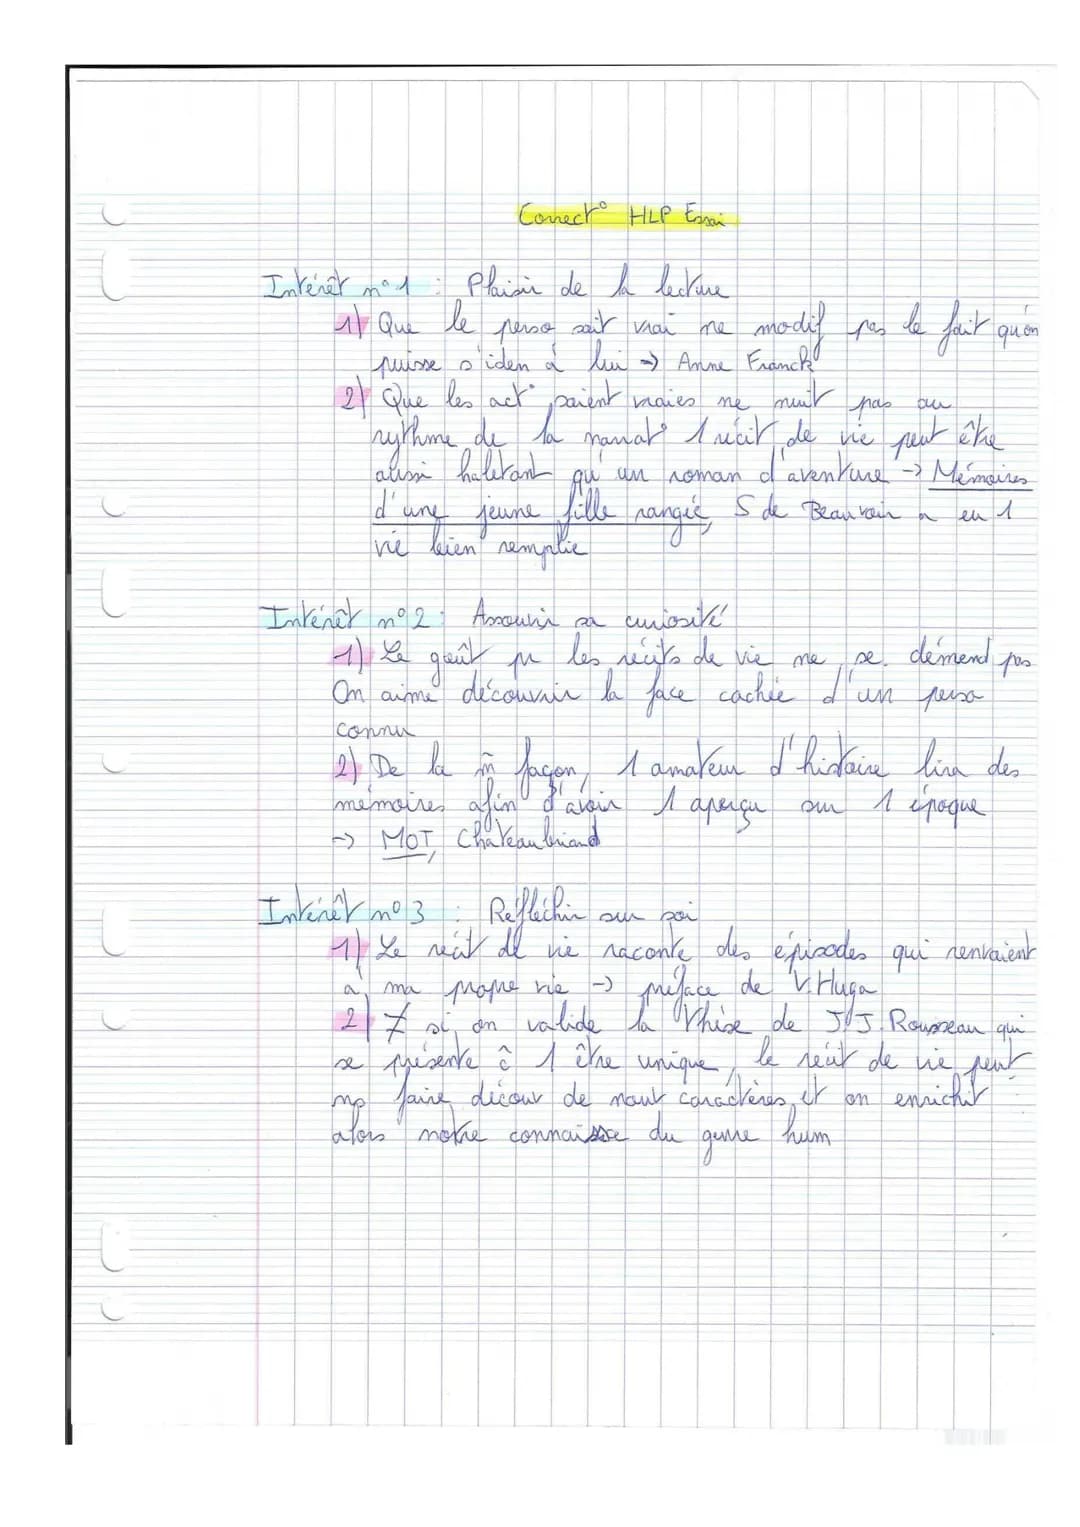 Correct° HLP Essai
Intérêt n°1 : Plaisir de la lecture
1) Que le perso soit vrai ne modif pas le fait qu'on
puisse s'iden à lui → Anne Franck
2) Que les act° soient vraies ne nuit pas au
rythme de la narrat° 1 récit de vie peut être
aussi haletant qu'un roman d'aventure → Mémoires
d'une jeune fille rangée, S de Beauvoir a eu 1
vie bien remplie
Intérêt n°2 : Assouvir sa curiosité
1) Le goût pr les récits de vie ne se démend pas
On aime découvrir la face cachée d'un perso
connu
2) De la m̂ façon, 1 amateur d'histoire lira des
mémoires afin d'avoir 1 aperçu sur 1 époque
→ MOT, Chateaubriand
Intérêt n°3 : Réfléchir sur soi
1) Le récit de vie raconte des épisodes qui renvoient
à ma propre vie → préface de V. Hugo
2) ≠ si, on valide la thèse de J J Rousseau qui
se présente ĉ 1 être unique, le récit de vie peut
ns faire découv de nouv caractères et on enrichit
alors notre connaisse du genre hum